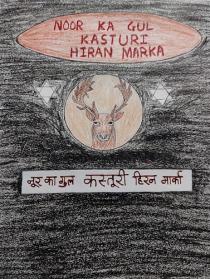 NOOR KA GUL
KASTURI
HIRAN MARKA
नूर का गुल कस्तूरी हिरन मार्का